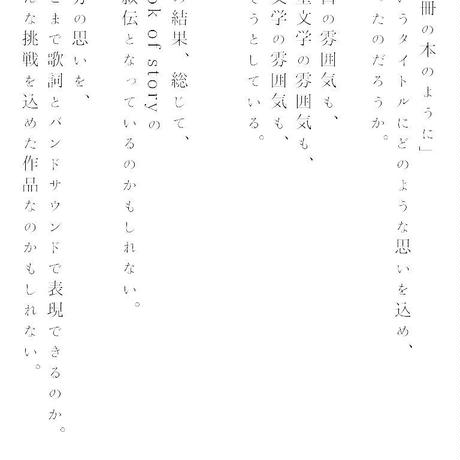 冊の本のように」
うタイトルにどのような思いを込め、
ったのだろうか。
の雰囲気も、
文学の雰囲気も、
文学の雰囲気も、
そうとしている。
の結果、総じて、
ok of storyの
叙伝となっているのかもしれない。
の思いを、
まで歌詞とバンドサウンドで表現できるのか。
な挑戦を込めた作品なのかもしれない。